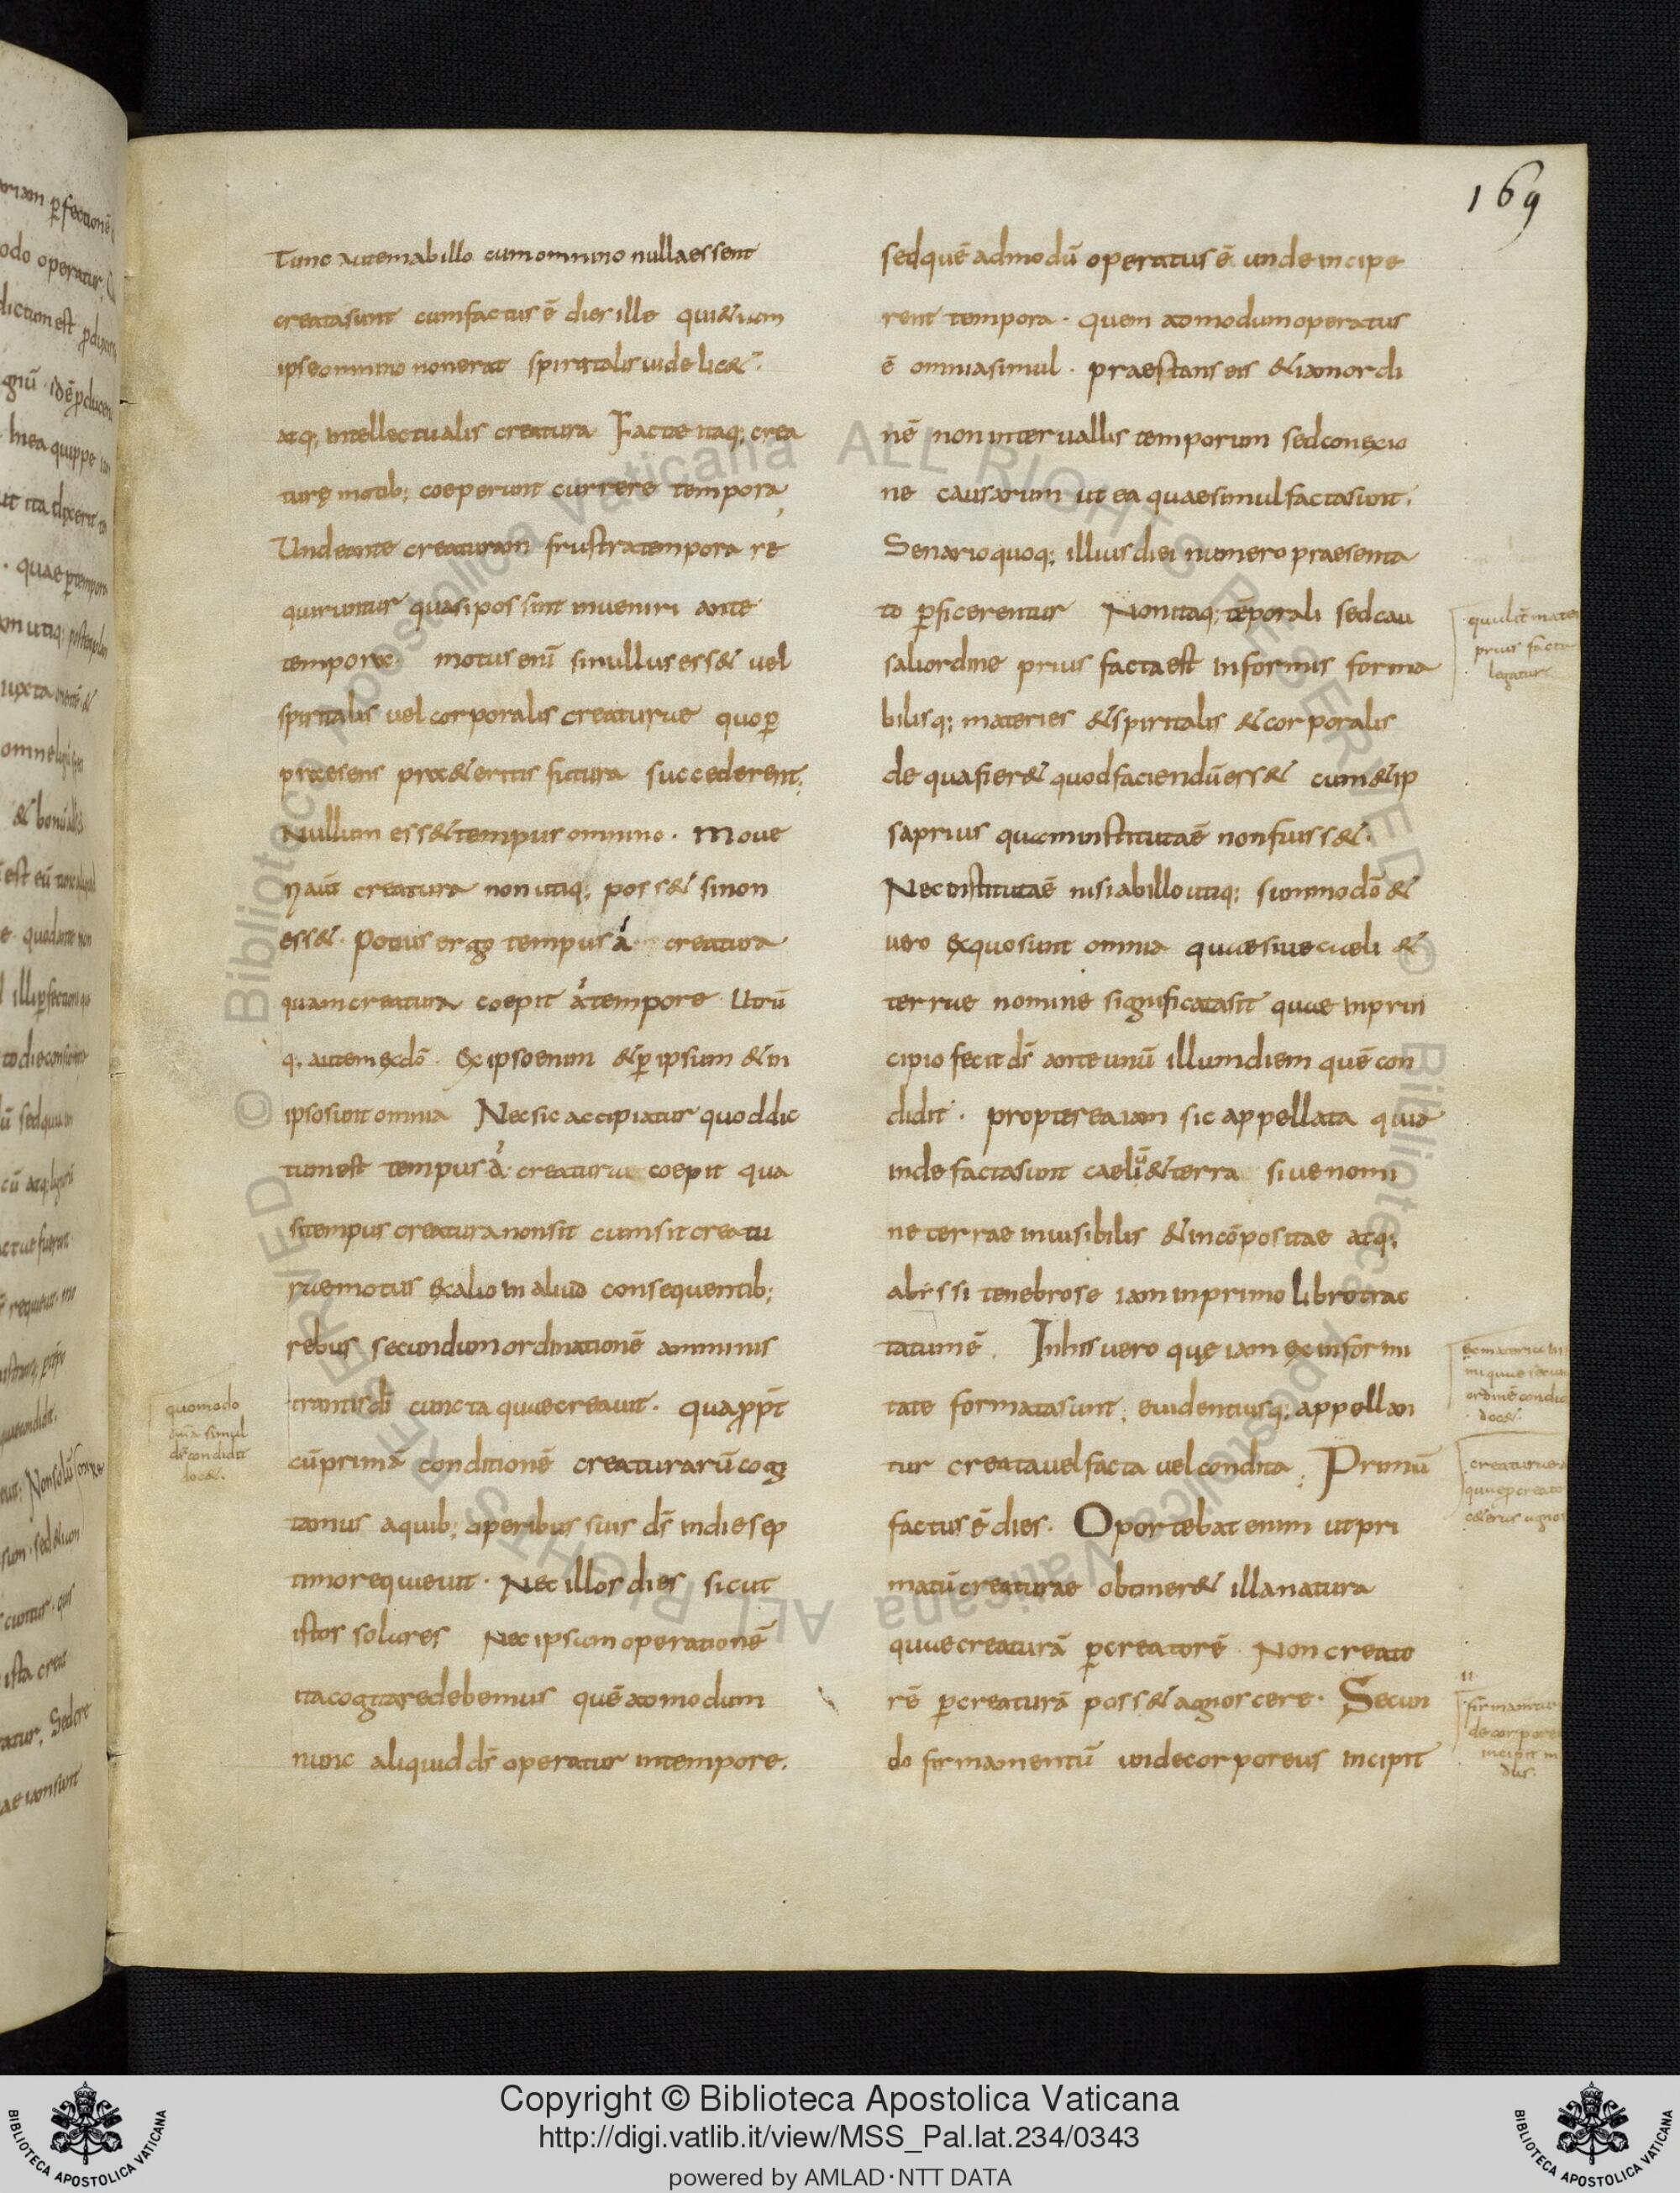 169
Tunc autem ab illo cum omnino nulla essent
creata sunt cum factus ē dies ille qui & iam
ipse omnino non erat spiritalis uidelic&
atq; intellectualis creatura Factae itaq; crea
turę motib; coeperunt currere tempora
Unde ante creaturam frustra tempora re
quiruntur quasi possint inueniri ante
tempora motus enī si nullus ess& uel
spiritalis uel corporalis creaturae quo p̄
praesens praeteritis futura succederent;
Nullum ess& tempus omnino. Moue
ri aūt creatura non utiq; poss& si non
ess&. Potius ergo tempus á creatura
quam creatura coepit á tempore Utrū
q; autem ex dō. Ex ipso enim & p̄ ipsum & in
ipso sunt omnia Nec sic accipiatur quod dic
tum est tempus á creatura coepit qua
si tempus creatura non sit cum sit creatu
rae motus ex alio in aliud consequentib;
rebus secundum ordinationē amminis
trantis dī cuncta quae creauit. quapp̄t
cū primā conditionē creaturarū cogi
tamus a quib; operibus suis d̄s in die sep
timo requieuit. Nec illos dies sicut
istos solares Nec ipsam operationē
ita cogitare debemus quē ammodum
nunc aliquid d̄s operatur in tempore.
sed quē admodū operatus ē unde incipe
rent tempora. quem ammodum operatus
ē omnia simul. praestans eis & iam ordi
nē non interuallis temporum sed conexio
ne causarum ut ea quae simul facta sunt.
Senario quoq; illius diei numero praesenta
to p̄ficerentur Non itaq; tēporali sed cau
sali ordine prius facta est informis forma
bilisq; materies & spiritalis & corporalis
de qua fier& quod faciendū ess& cum & ip
sa prius quam instituta ē non fuiss&.
Nec instituta ē nisi ab illo utiq; summo dō &
uero ex quo sunt omnia quae siue caeli &
terrae nomine significata sit quae in prin
cipio fecit d̄s ante unū illum diem quē con
didit. propterea iam sic appellata quia
inde facta sunt caelū & terra siue nomi
ne terrae inuisibilis & incōpositae atq;
abissi tenebrose iam in primo libro trac
tatum ē. In his uero quę iam ex informi
tate formata sunt; euidentiusq; appellan
tur creata uel facta uel condita; Primū
factus ē dies. Oportebat enim ut pri
matū creaturae obtiner& illa natura
quae creaturā p̄ creatorē. Non creato
rē p̄ creaturā poss& agnoscere. Secun
do firmamentū unde corporeus incipit
quomodo
om̄a simul
d̄s condidit
doc&.
prius facta
legatur
ordinē condi
doc&.
creaturae
quae p̄ creato
firmamtū
de corpore
incipit
Copyright © Biblioteca Apostolica Vaticana
http://digi.vatlib.it/view/MSS_Pal.lat.234/0343
powered by AMLAD·NTT DATA
BIBLIOTECA APOSTOLICA VATICANA
BIBLIOTECA APOSTOLICA VATICANA